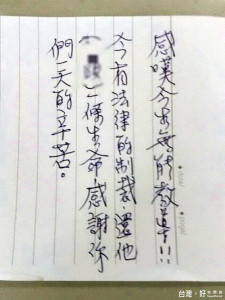 感嘆今生無能教導!!
今有法律的制裁,還他
一條生命感謝你
們一天的辛苦。
台灣好